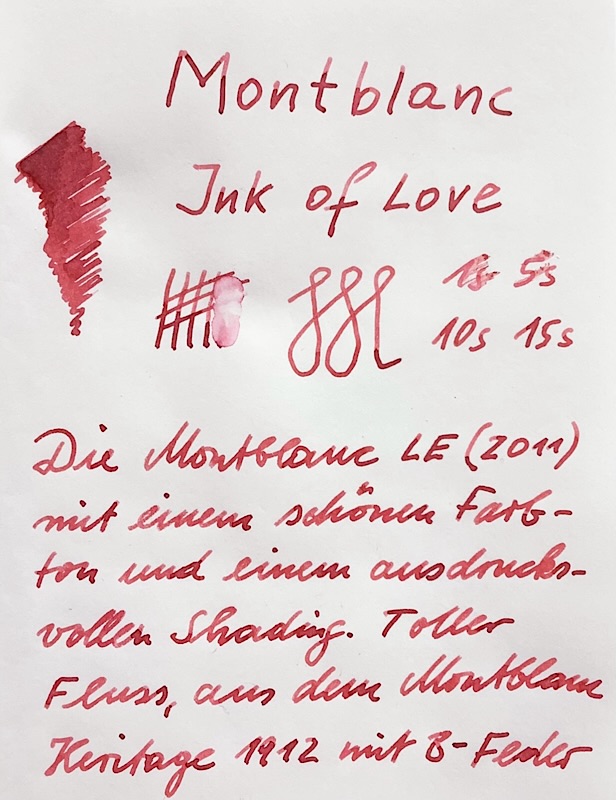 Montblanc
Ink of Love
1s 5s
10s 15s
Die Montblanc LE (2011)
mit einem schönen Farb-
ton und einem ausdrucks-
vollen Shading. Toller
Fluss, aus dem Montblanc
Heritage 1912 mit B-Feder